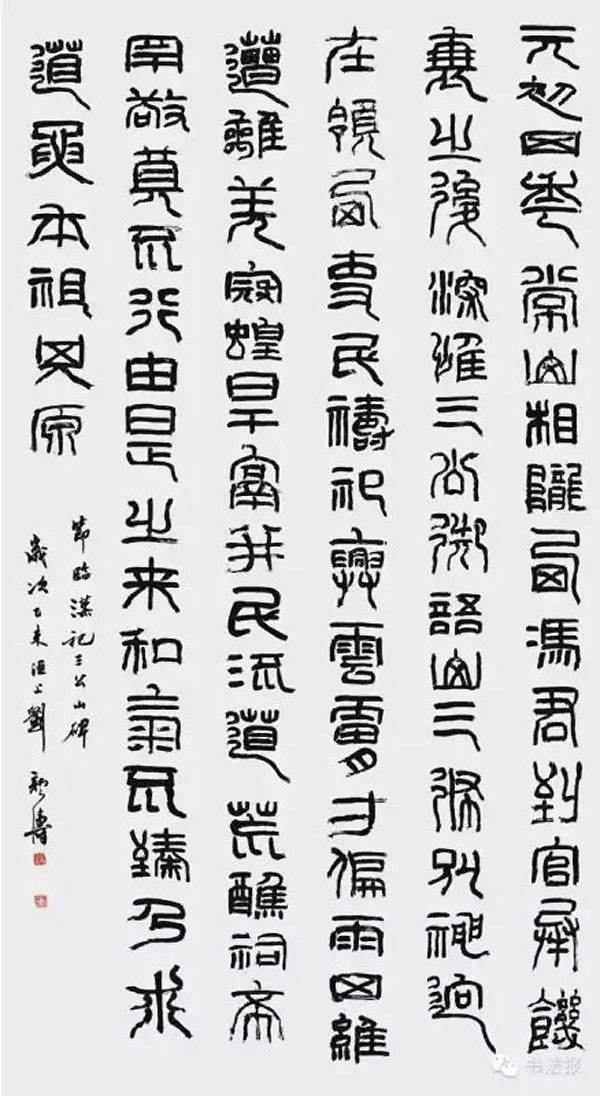 元初四年常山相隴西馮君到官承饑
衰之後深惟三公御語山三條別神迥
在領西吏民禱祀興雲膚寸偏雨四維
遭離羌寇蝗旱鬲并民流道荒醮祠希
罕敬奠不行由是之來和氣不臻乃求
道要本祖其原
節臨漢祀三公山碑
歲次乙未上劉
书法报